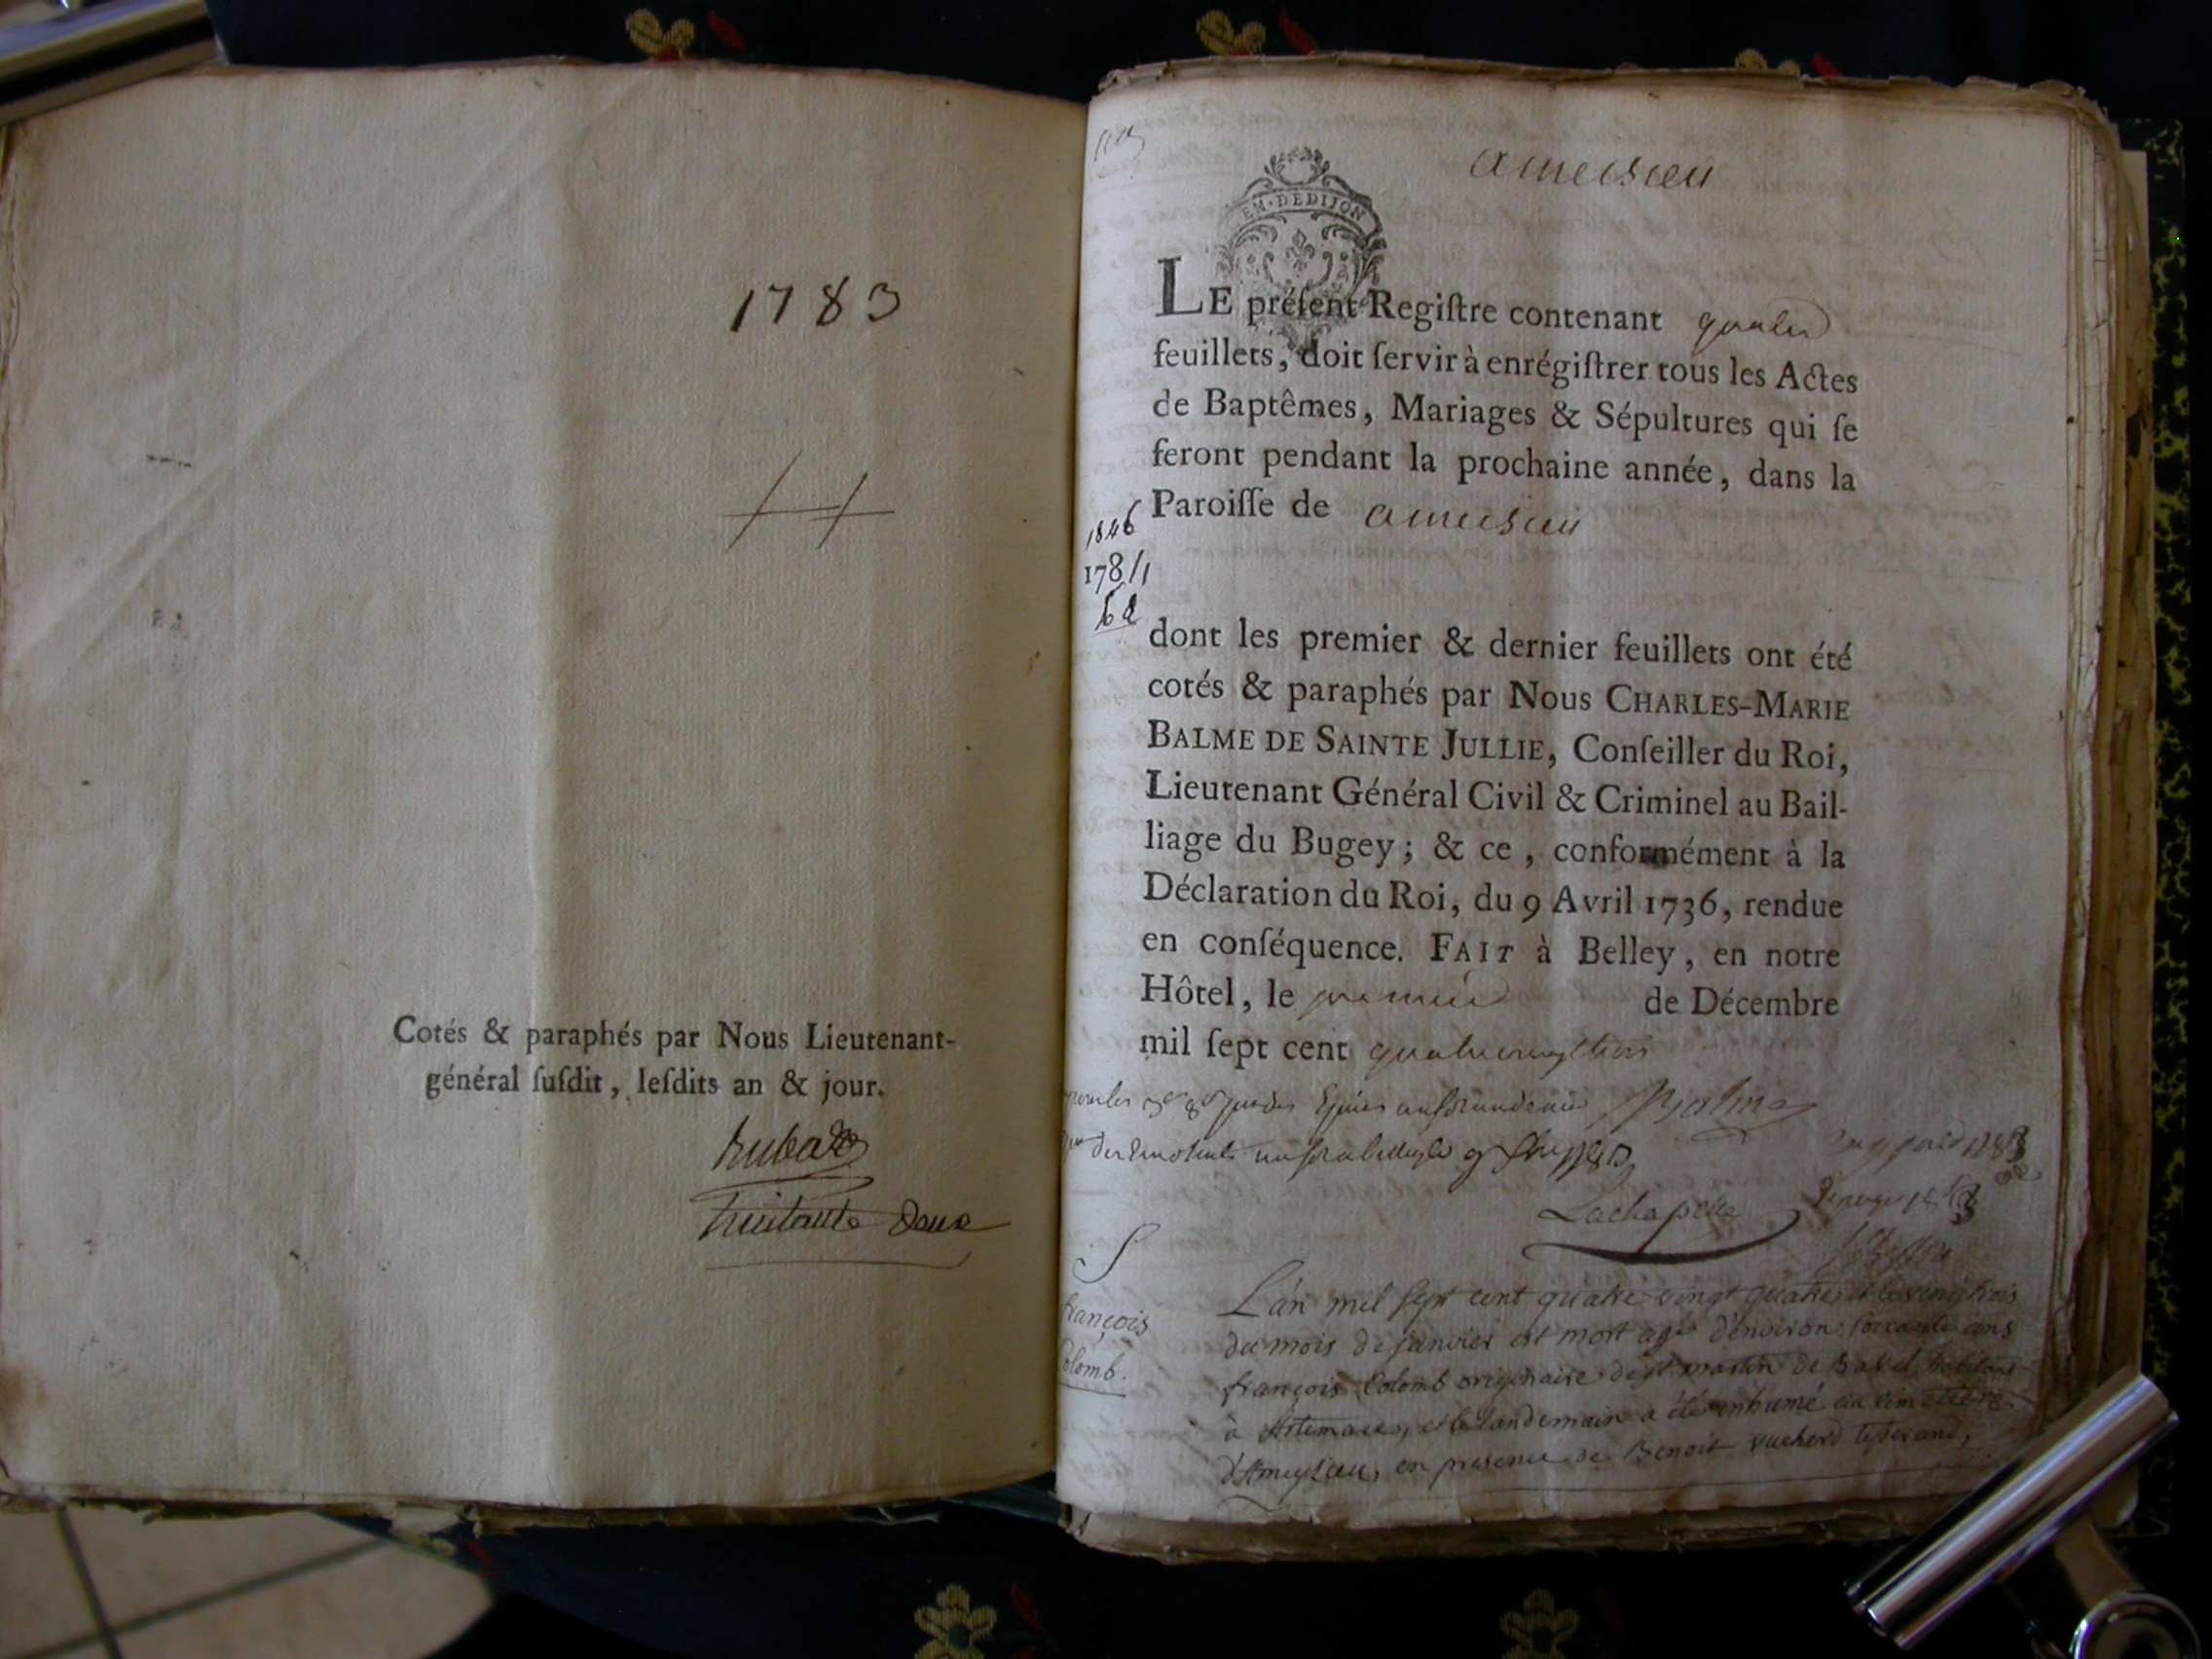 1783
Cotés & paraphés par Nous Lieutenant-
général ſuſdit, leſdits an & jour.
ameisieu
EM·DEDIJON
LE préſent Regiſtre contenant
feuillets, doit ſervir à enrégiſtrer tous les Actes
de Baptêmes, Mariages & Sépultures qui ſe
feront pendant la prochaine année, dans la
Paroiſſe de ameisieu
1846
178/1
62
dont les premier & dernier feuillets ont été
cotés & paraphés par Nous CHARLES-MARIE
BALME DE SAINTE JULLIE, Conſeiller du Roi,
Lieutenant Général Civil & Criminel au Bail-
liage du Bugey; & ce, conformément à la
Déclaration du Roi, du 9 Avril 1736, rendue
en conſéquence. FAIT à Belley, en notre
Hôtel, le premier de Décembre
mil ſept cent quatrevingt trois
Balme
Lachapelle
S
françois
Colomb.
L'an mil sept cent quatre-vingt quatre et le vingt trois
du mois de janvier est mort agé d'environ soixante ans
françois Colomb originaire de st martin de Bavel habitant
à Artemare, et le landemain a été inhumé au cimetière
d'Ameysieu, en presence de Benoit vucherd tisserand,